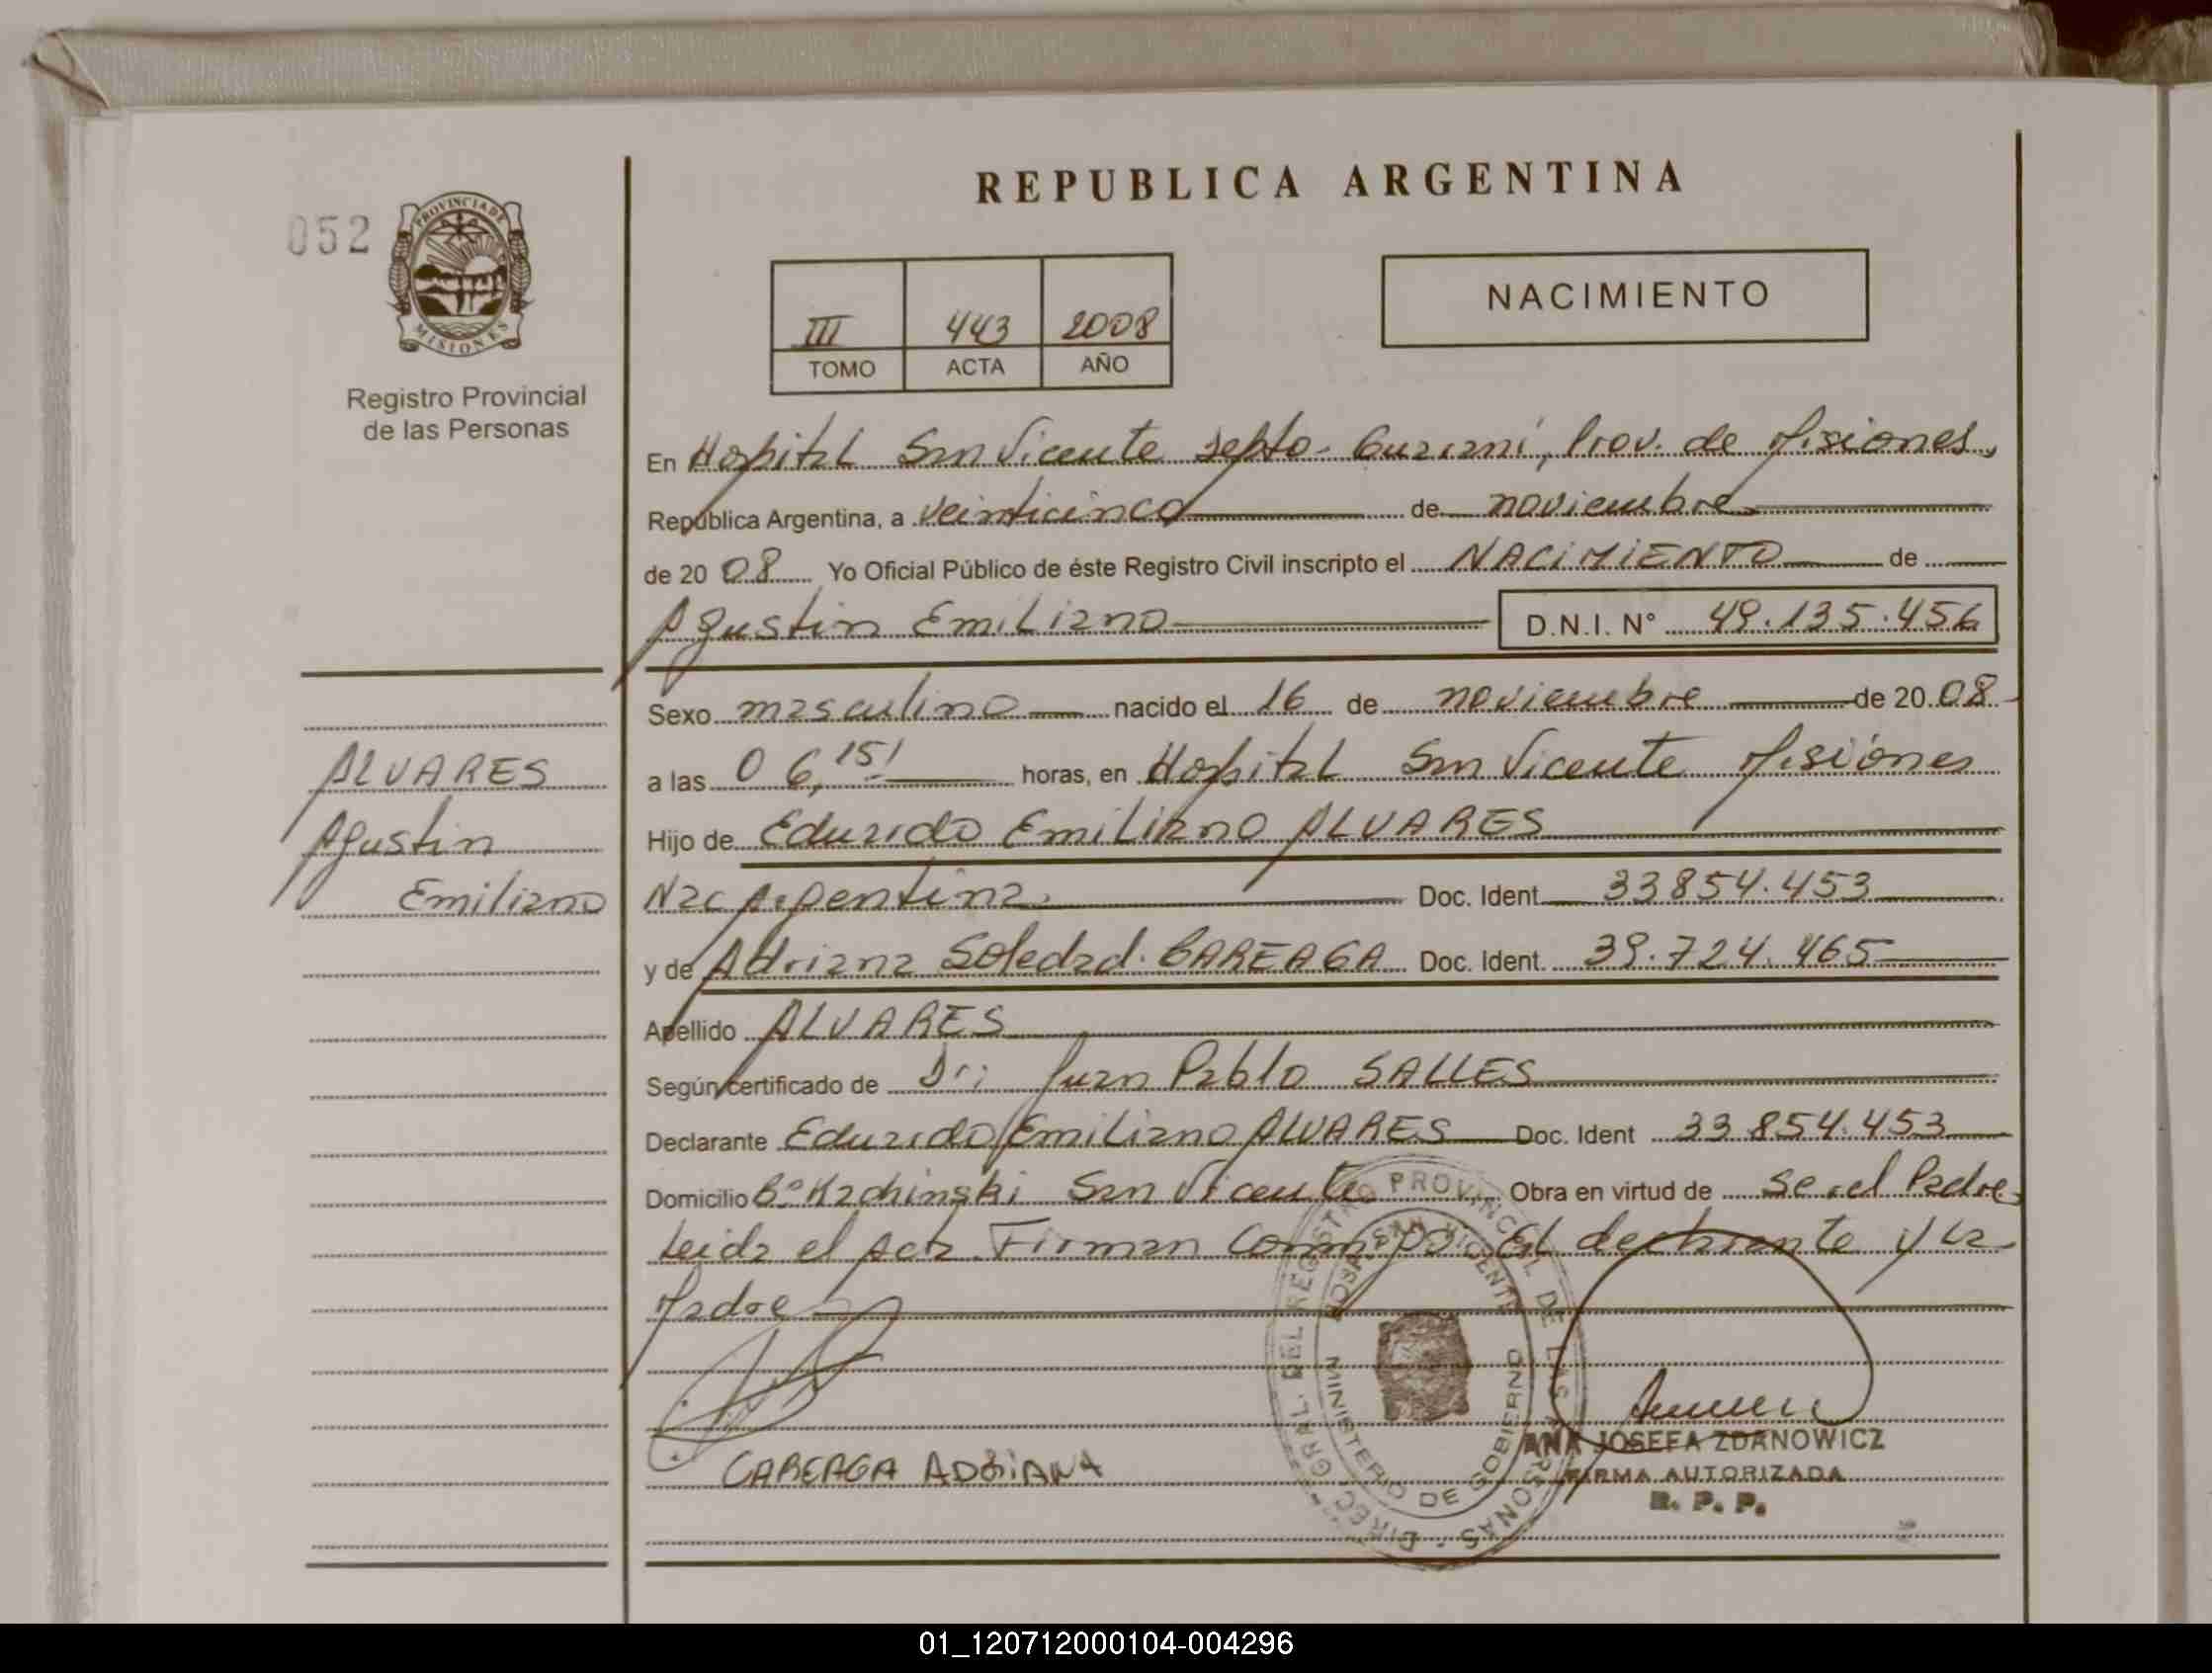 REPUBLICA ARGENTINA
052
PROVINCIA DE
MISIONES
Registro Provincial
de las Personas
III 443 2008
TOMO ACTA AÑO
NACIMIENTO
En Hospital San Vicente Depto- Guaraní, Prov. de Misiones,
República Argentina, a veinticinco de noviembre
de 20 08 Yo Oficial Público de éste Registro Civil inscripto el NACIMIENTO de
Agustin Emiliano D.N.I. N° 49.135.456
Sexo masculino nacido el 16 de noviembre de 20 08
a las 06,15' horas, en Hospital San Vicente Misiones
Hijo de Eduardo Emiliano ALVARES
Nac Argentina. Doc. Ident. 33854.453
y de Adriana Soledad. CAREAGA Doc. Ident. 39.724.465
Apellido ALVARES
Según certificado de Dr: Juan Pablo SALLES
Declarante Eduardo Emiliano ALVARES Doc. Ident 33 854.453
Domicilio B° Kachinski San Vicente Obra en virtud de ser el Padre
Leida el Acta Firman Conmigo el declarante y La
Madre
ALVARES
Agustin
Emiliano
CAREAGA ADRIANA
DIREC. GRAL. DEL REGISTRO PROVINCIAL DE LAS PERSONAS
HOSP. SAN VICENTE
MINISTERIO DE GOBIERNO
ANA JOSEFA ZDANOWICZ
FIRMA AUTORIZADA
R. P. P.
01_120712000104-004296